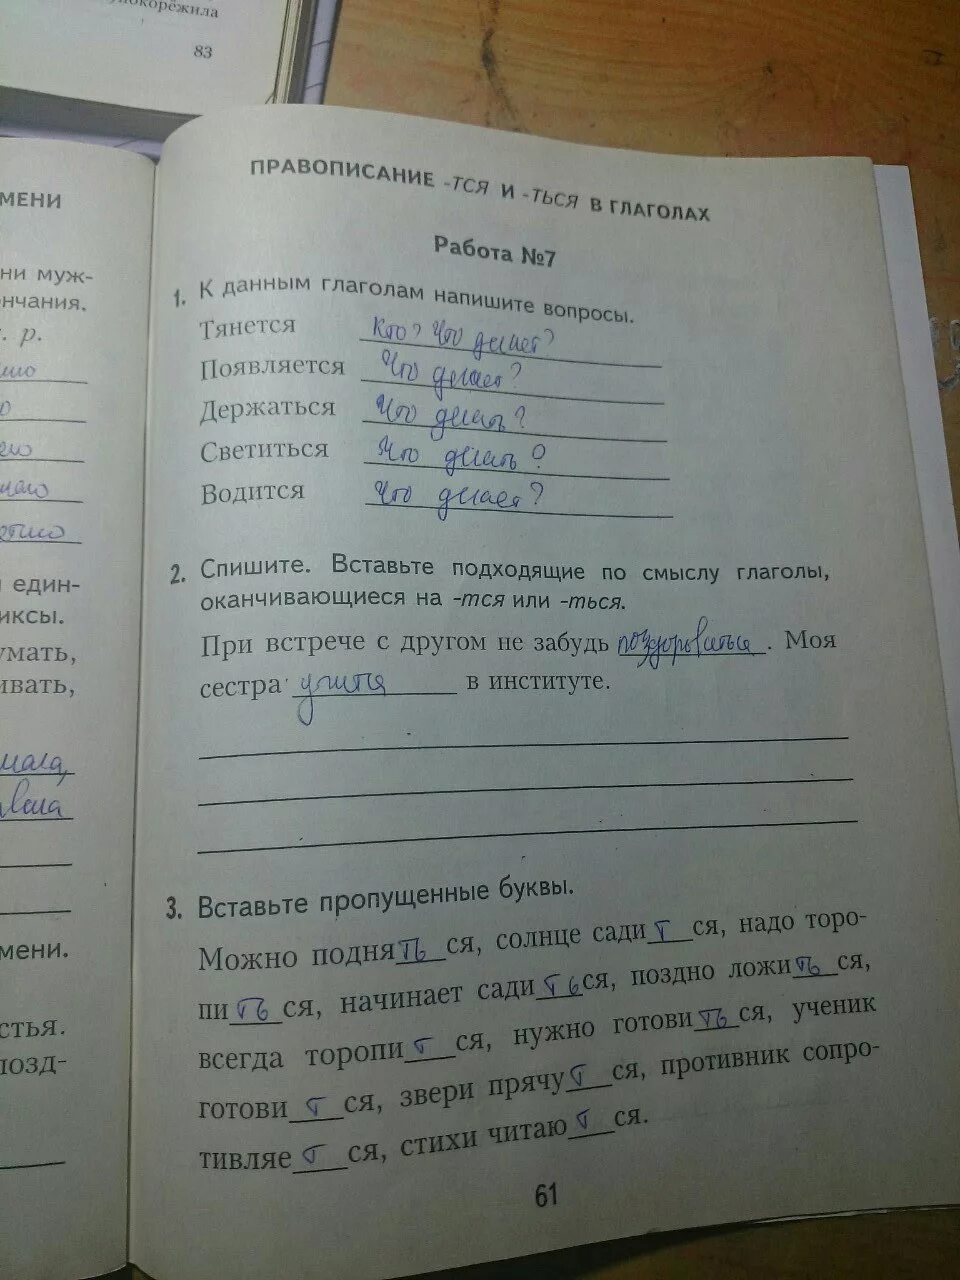 покорёжила
83
МЕНИ
ни муж-
ончания.
. р.
един-
иксы.
умать,
ивать,
мени.
стья.
позд-
ПРАВОПИСАНИЕ -ТСЯ И -ТЬСЯ В ГЛАГОЛАХ
Работа №7
1. К данным глаголам напишите вопросы.
Тянется Кто? Что делает?
Появляется Что делает?
Держаться Что делать?
Светиться Что делать?
Водится Что делает?
2. Спишите. Вставьте подходящие по смыслу глаголы,
оканчивающиеся на -тся или -ться.
При встрече с другом не забудь поздороваться. Моя
сестра учится в институте.
3. Вставьте пропущенные буквы.
Можно подня ть ся, солнце сади т ся, надо торо-
пи ть ся, начинает сади ть ся, поздно ложи ть ся,
всегда торопи т ся, нужно готови ть ся, ученик
готови т ся, звери прячу т ся, противник сопро-
тивляе т ся, стихи читаю т ся.
61